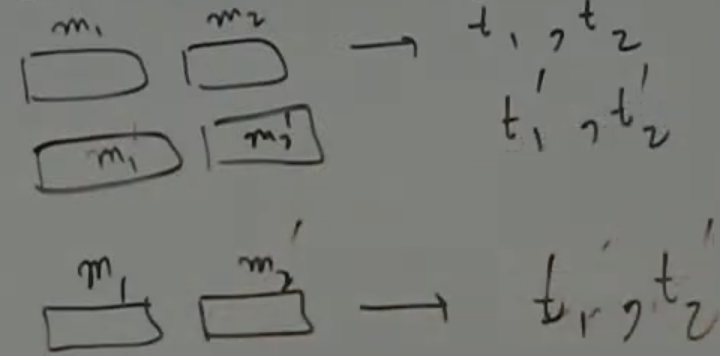 m₁ m₂ → t₁, t₂
m₁' m₂' t₁', t₂'
m₁ m₂' → t₁', t₂'